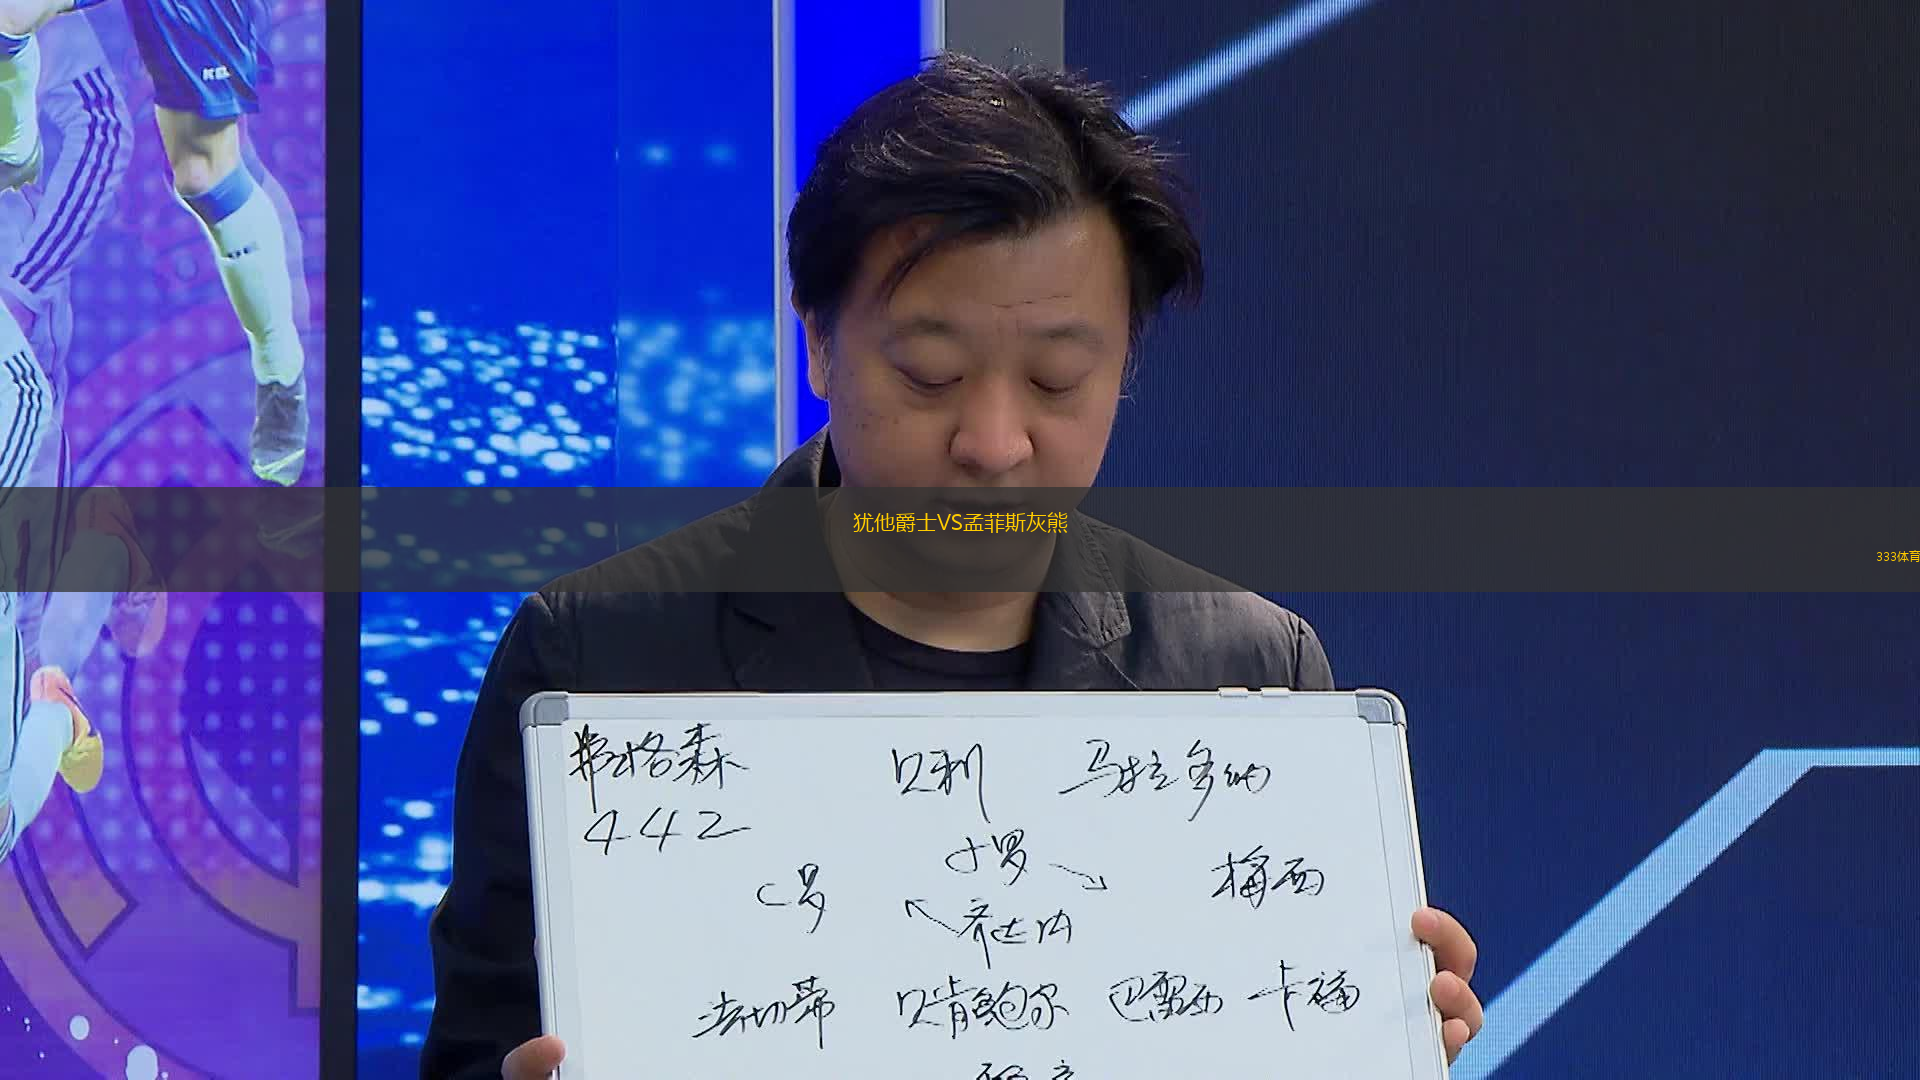 犹他爵士VS孟菲斯灰熊
333体育
弗格森 贝利 马拉多纳
442
小罗
C罗 梅西
齐达内
法切蒂 贝肯鲍尔 巴雷西 卡福